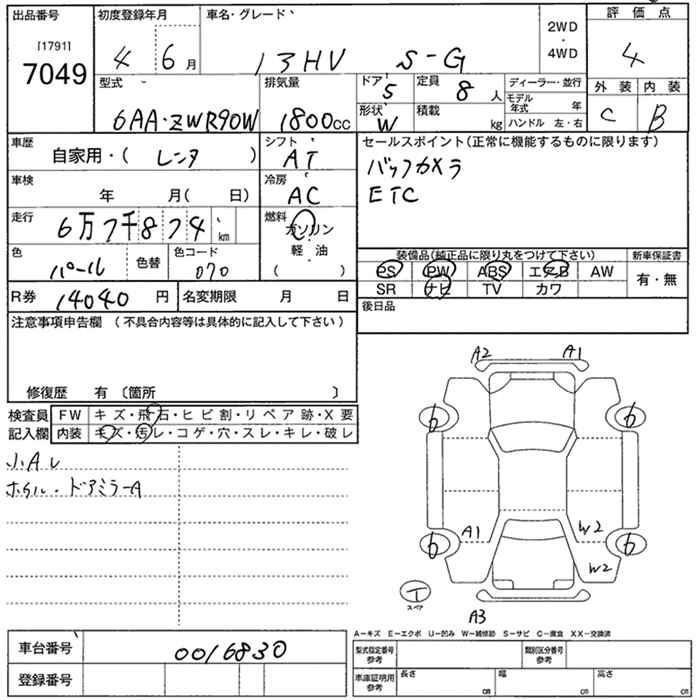 出品番号
[1791]
7049
初度登録年月
4 6月
車名・グレード
13HV S-G
2WD
・
4WD
評価点
4
型式
6AA・ZWR90W
排気量
1800cc
ドア 5
形状 W
定員 8人
積載 kg
ディーラー・並行
モデル年式 年
ハンドル 左・右
外装 内装
C B
車歴
自家用・( レンタ )
シフト
AT
車検
年 月( 日)
冷房
AC
走行
6万7千874 km
燃料
ガソリン
軽・油
( )
色
パール
色替
色コード
070
R券 14040円
名変期限 月 日
セールスポイント(正常に機能するものに限ります)
バックカメラ
ETC
装備品(純正品に限り丸をつけて下さい)
新車保証書
PS PW ABS エアB AW
SR ナビ TV カワ
有・無
後日品
注意事項申告欄 (不具合内容等は具体的に記入して下さい)
修復歴 有 〔箇所 〕
検査員
記入欄
FW キズ・飛石・ヒビ割・リペア跡・X要
内装 キズ・汚レ・コゲ・穴・スレ・キレ・破レ
小AU
ホイル・ドアミラーA
A2 A1
6 6
A1 W2
6 6
W2
T
スペア
A3
A-キズ E-エクボ U-凹み W-補修跡 S-サビ C-腐食 XX-交換済
車台番号 0016830
登録番号
型式指定番号
参考
類別区分番号
参考
車庫証明用
参考
長さ cm
幅 cm
高さ cm